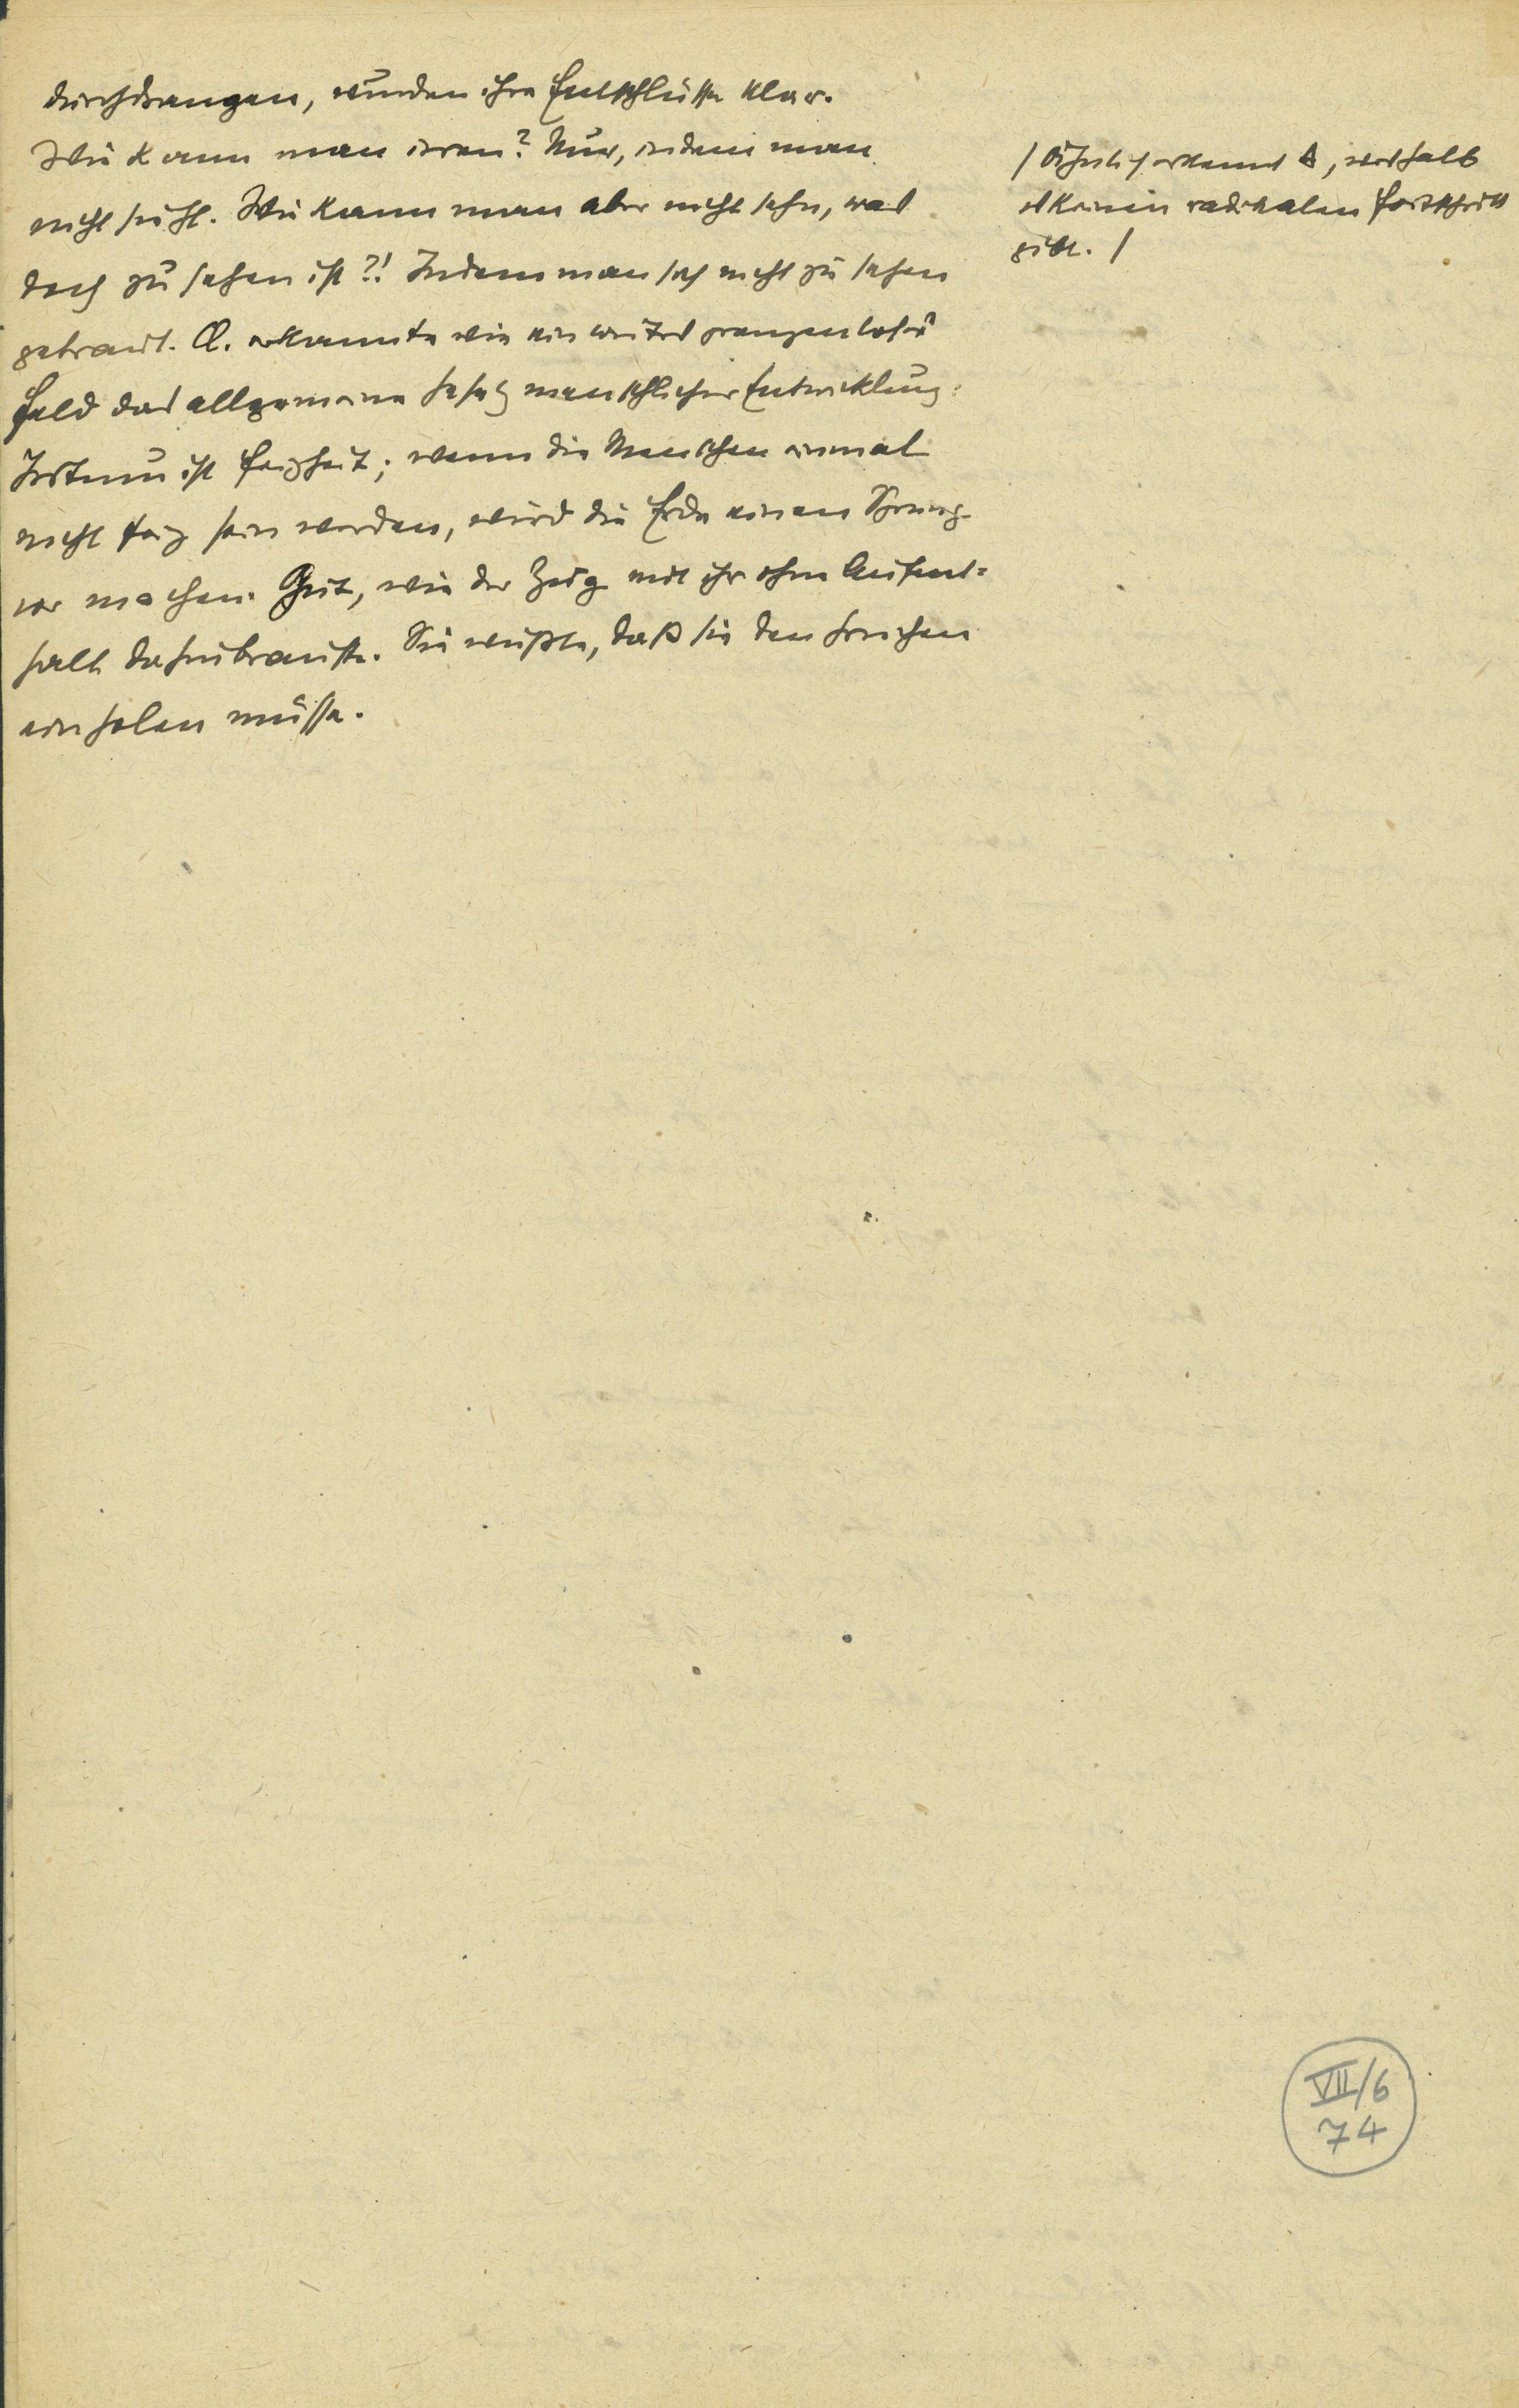 durchdrangen, wurden ihre Entschlüsse klar.
Wie kann man irren? Nur, indem man
nicht sieht. Wie kann man aber nicht sehn, was
doch zu sehen ist?! Indem man sich nicht zu sehen
getraut. Cl. erkannte wie ein weites grenzenloses
Feld das allgemeine Gesetz menschlicher Entwicklung:
Irrtum ist Feigheit; wenn die Menschen einmal
nicht feig sein werden, wird die Erde einen Sprung
vor machen. Gut, wie der Zug mit ihr ohne Aufent=
halt dahinbrauste. Sie wußte, daß sie den Griechen
einholen müsse.
/ Ähnlich erkannt A, weshalb
es keinen radikalen Fortschritt
gibt. /
VII/6
74